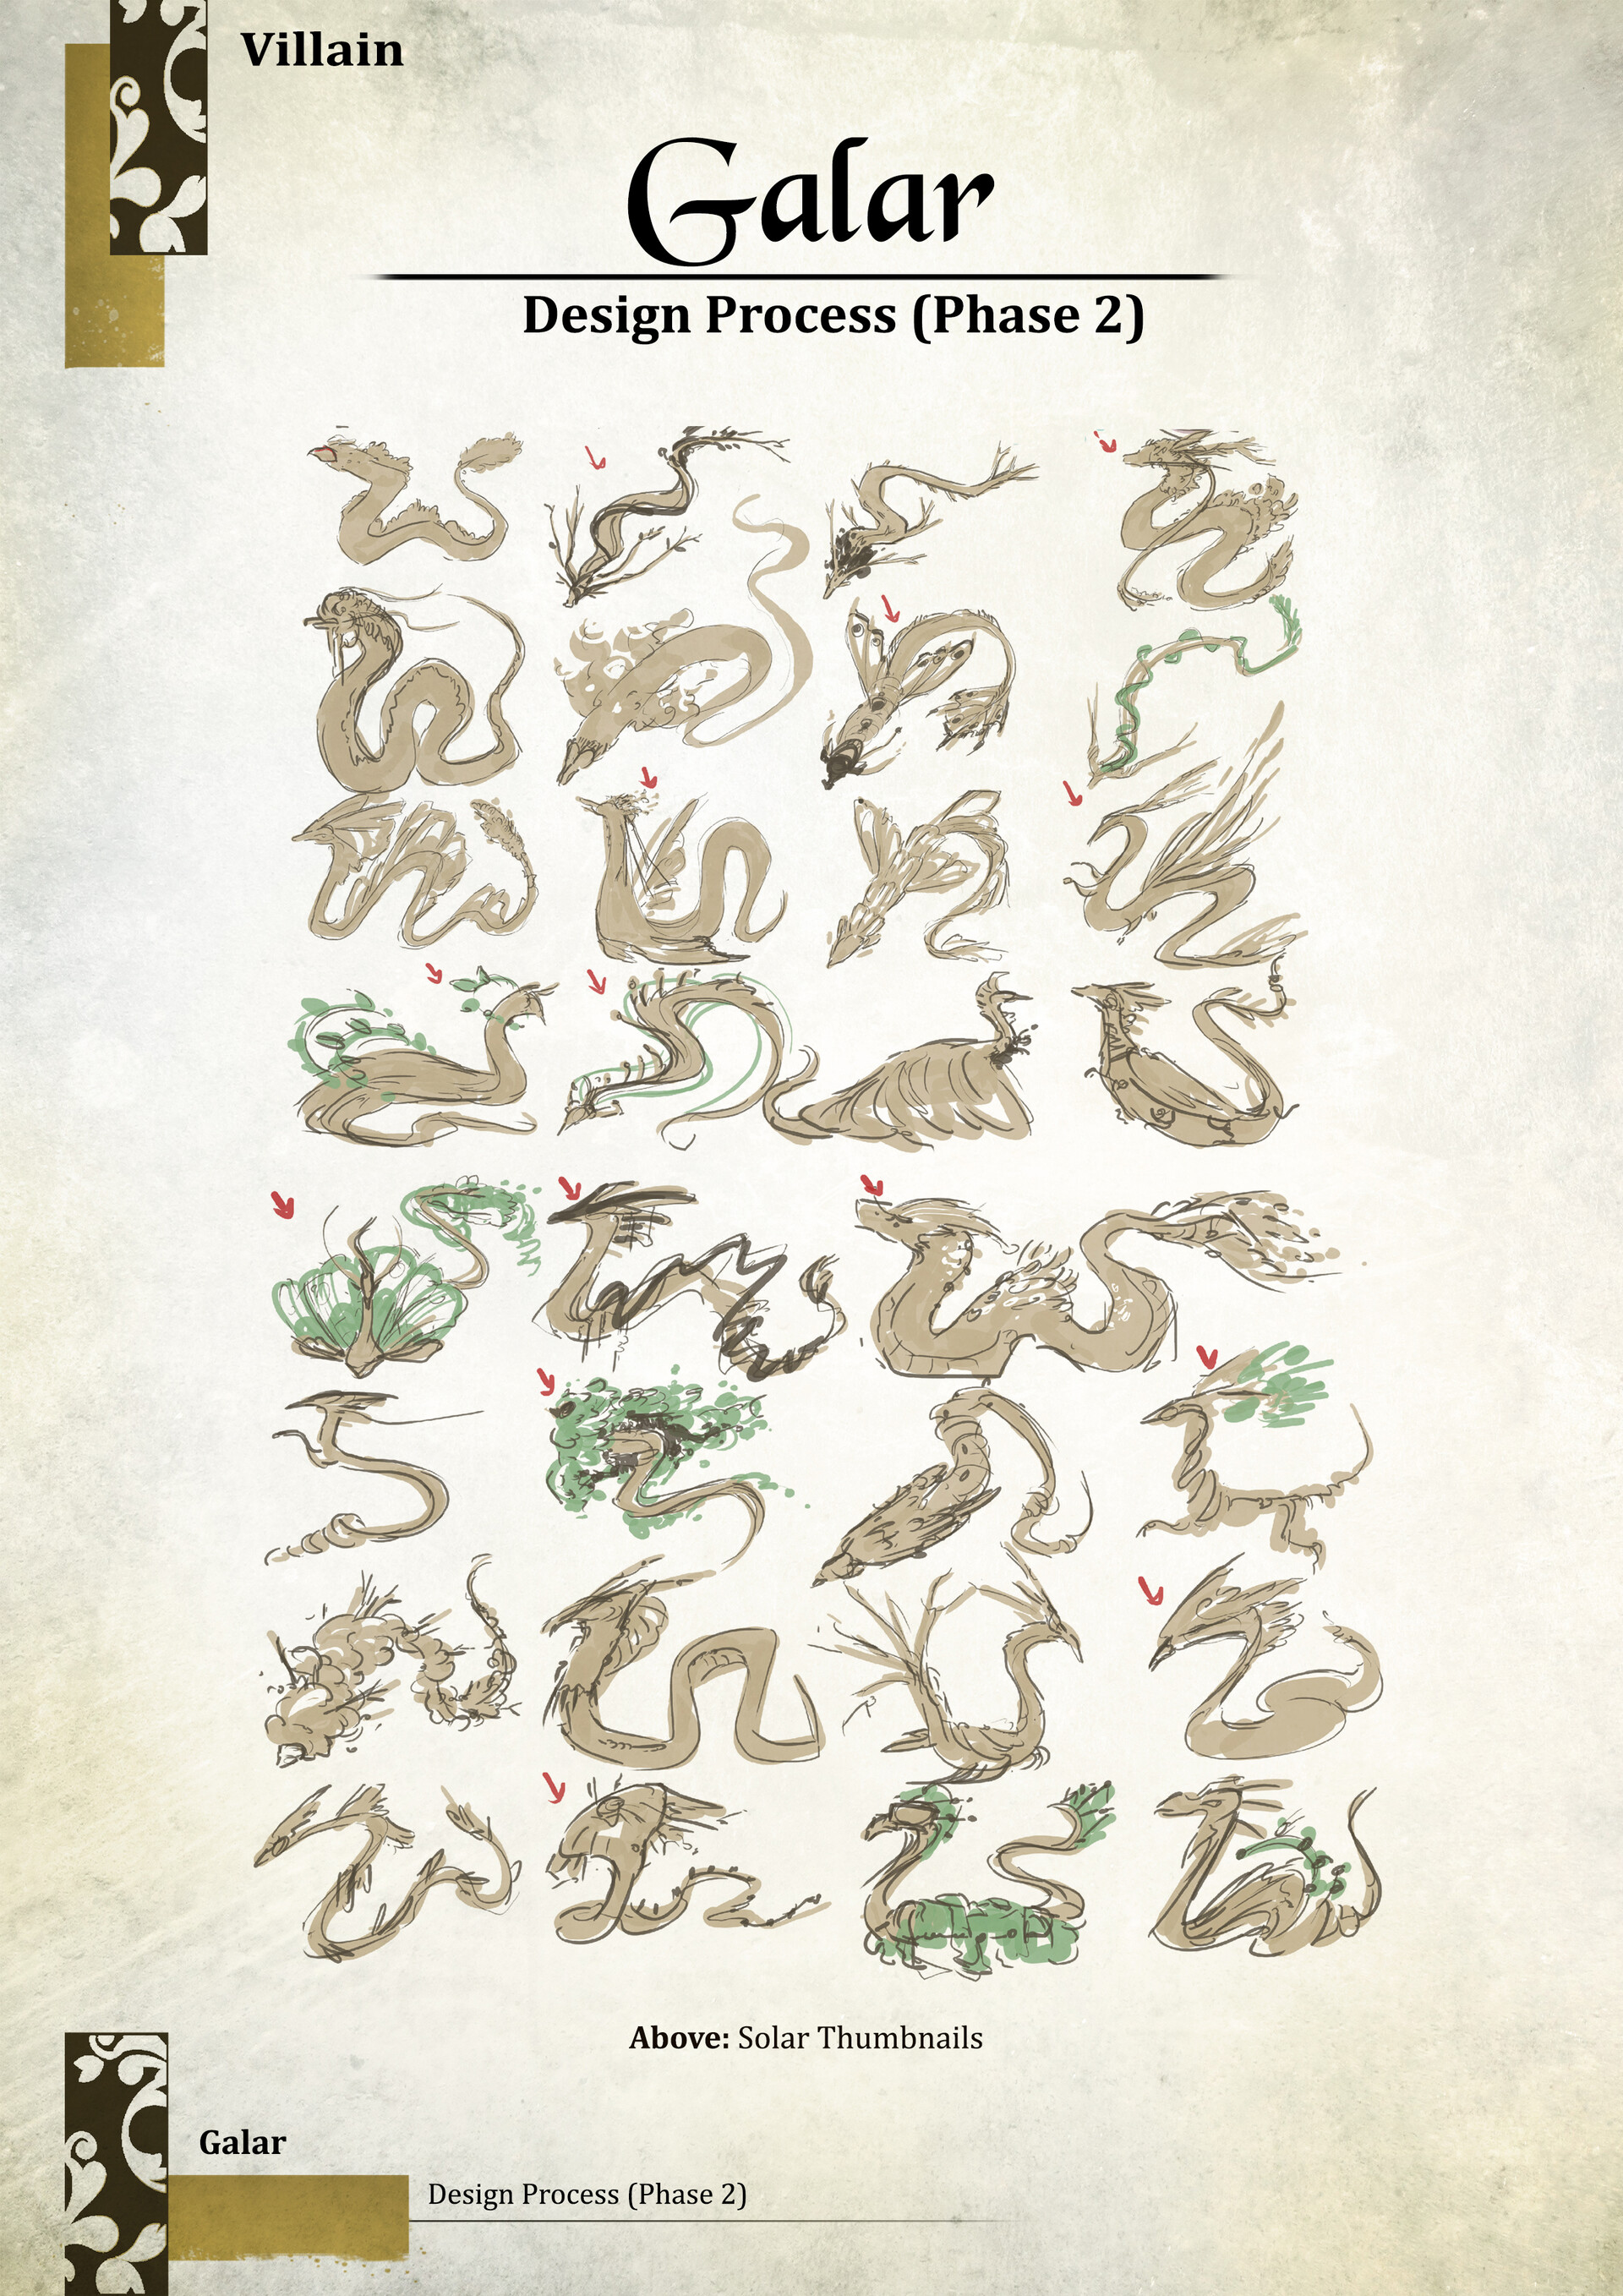 Villain
Galar
Design Process (Phase 2)
Above: Solar Thumbnails
Galar
Design Process (Phase 2)